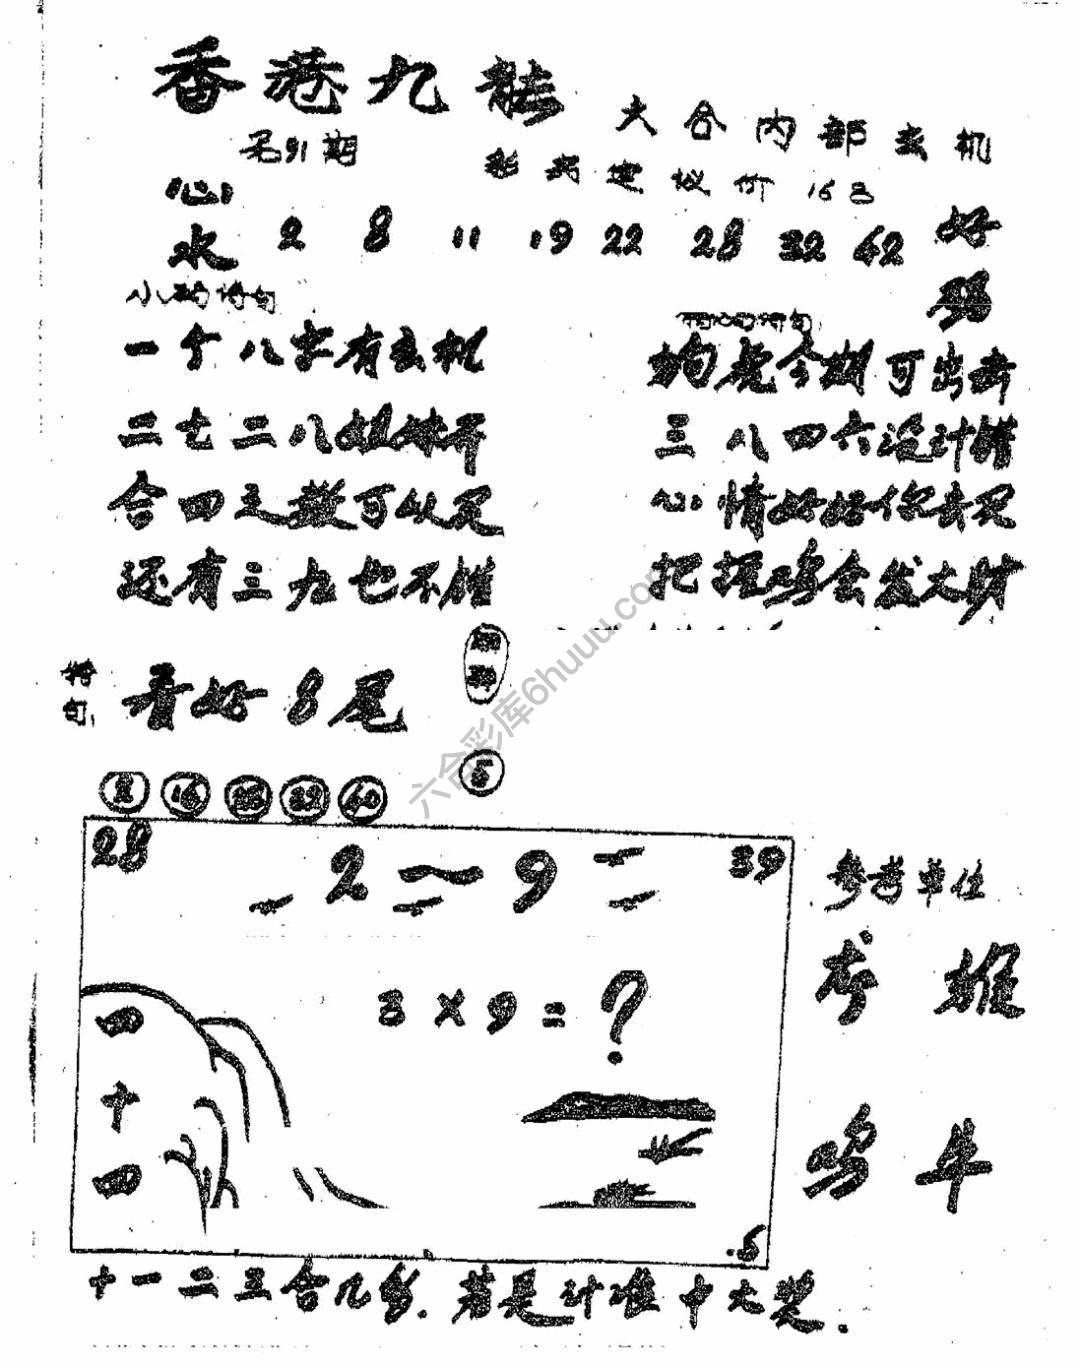 香港九龙
六合内部玄机
第91期
彩 建议价 16
心水 2 8 11 19 22 28 32 42 好码
小码诗句
一个八字有玄机
二七二八姐妹开
合四之数可以足
还有三九也不错
狗虎今期可出击
三八四六没计错
心情好好你去足
把握鸡会发大财
特句 看好8尾
16 39 40 5
28 2 9 39
3×9=?
四十四
.5
参考单位
猴
鸡 牛
十一二三合几多.若是计准中大奖.
六合彩库6huuu.com